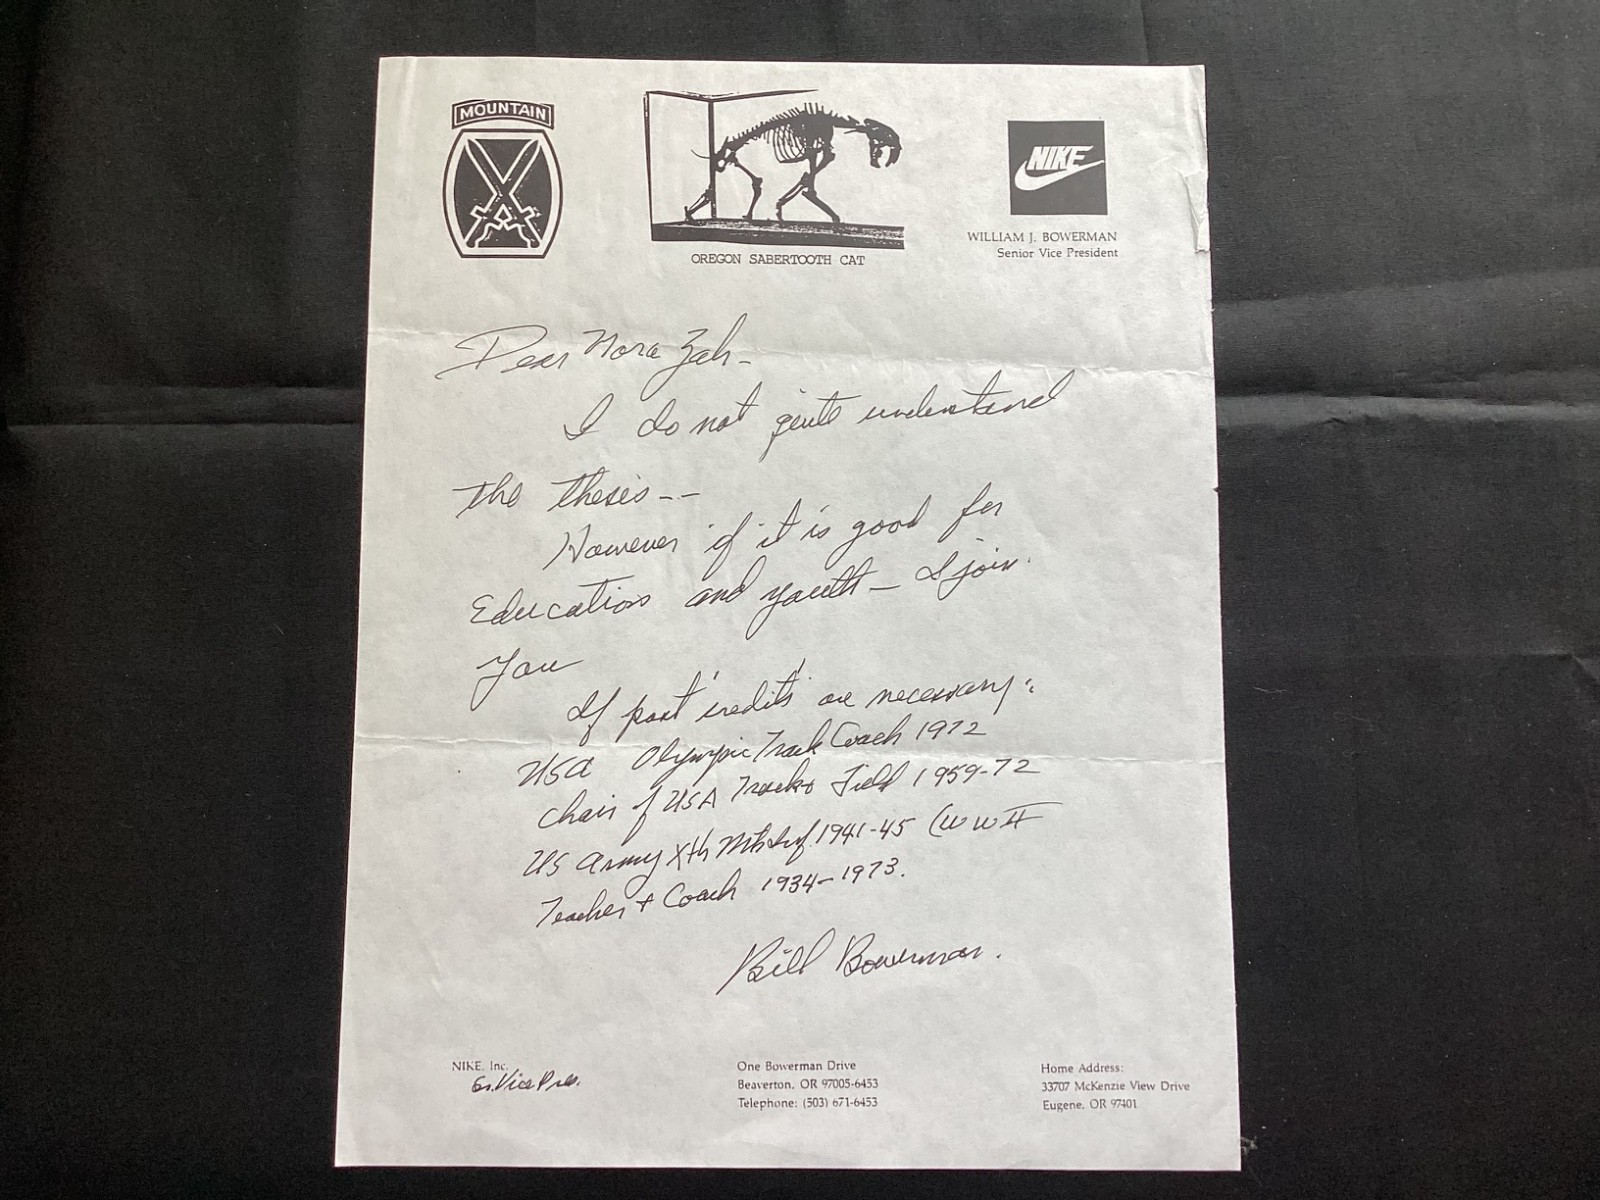 MOUNTAIN
OREGON SABERTOOTH CAT
NIKE
WILLIAM J. BOWERMAN
Senior Vice President
Dear Nora Zah-
I do not quite understand
the thesis--
However if it is good for
Education and youth- I join
you
If past 'credits' are necessary:
USA Olympic Track Coach 1972
Chair of USA Track & Field 1959-72
US Army Xth Mt 1941-45 (WW II
Teacher + Coach 1934-1973.
Bill Bowerman.
NIKE, Inc.
Sr. Vice Pres.
One Bowerman Drive
Beaverton, OR 97005-6453
Telephone: (503) 671-6453
Home Address:
33707 McKenzie View Drive
Eugene, OR 97401